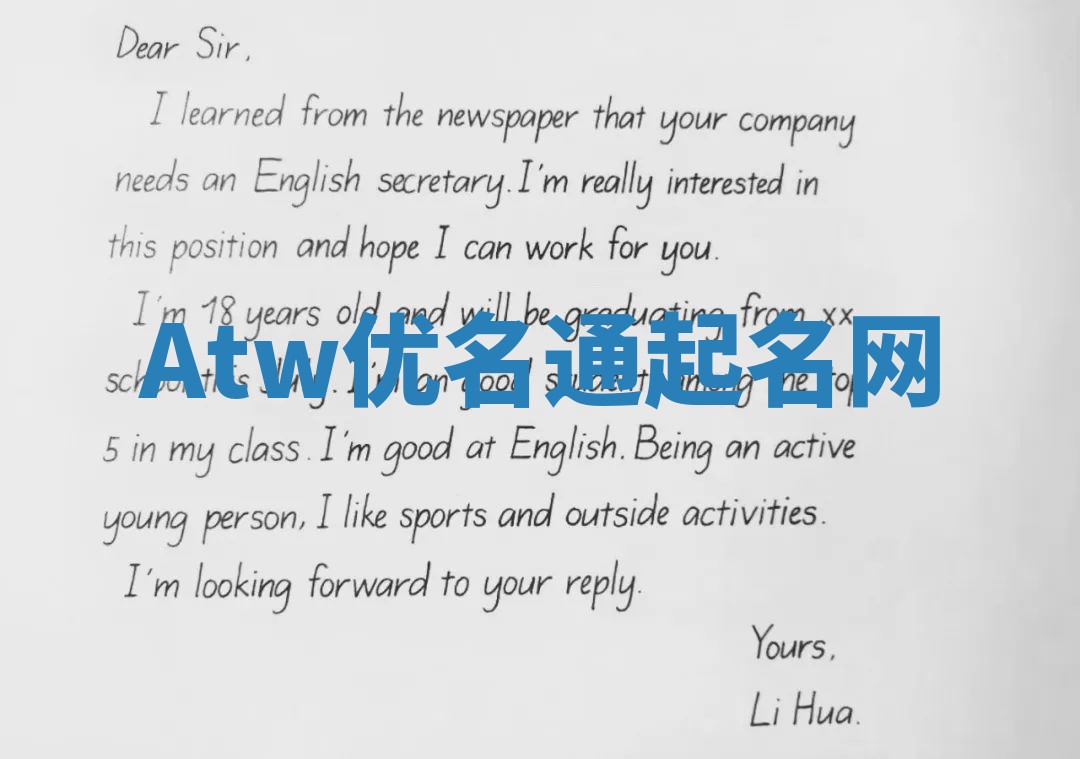 Dear Sir,
I learned from the newspaper that your company
needs an English secretary. I'm really interested in
this position and hope I can work for you.
I'm 18 years old and will be graduating from xx
school this July. I'm an good student, among the top
Atw优名通起名网
5 in my class. I'm good at English. Being an active
young person, I like sports and outside activities.
I'm looking forward to your reply.
Yours,
Li Hua.